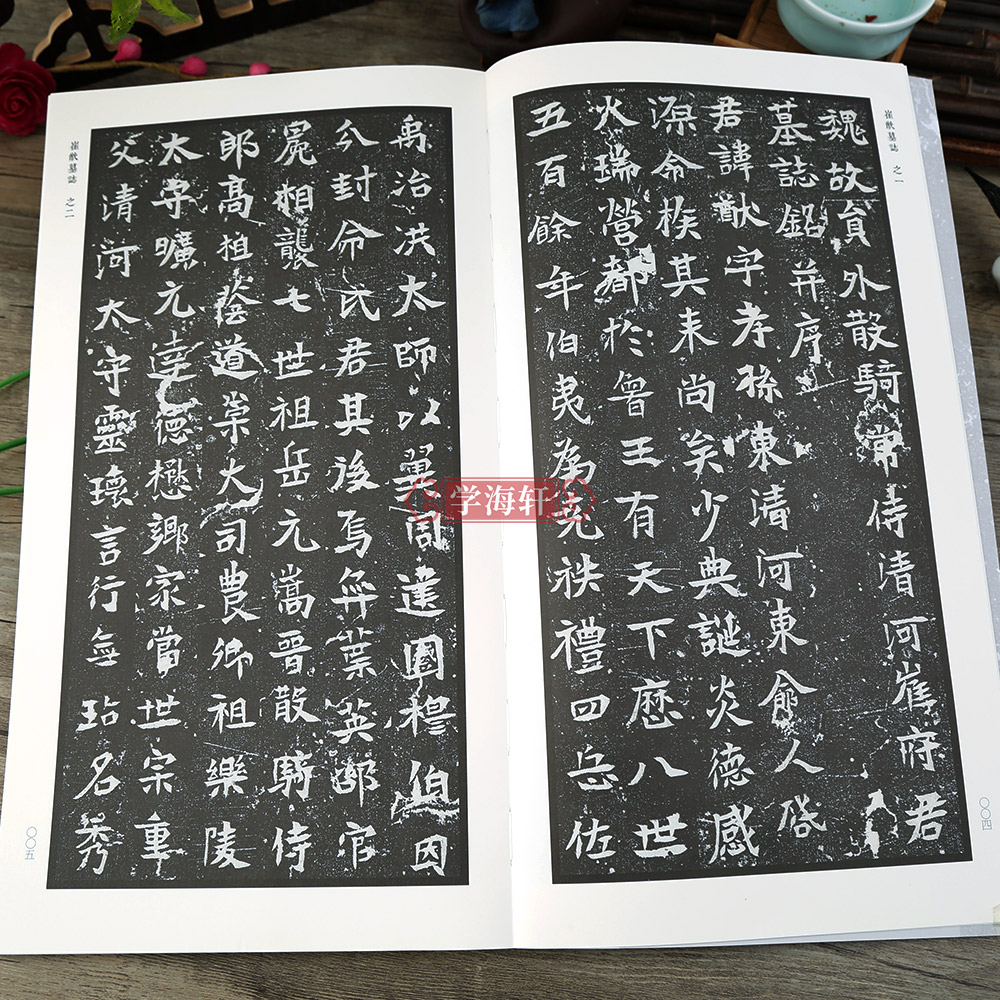 崔猷墓誌 之一
魏故員外散騎常侍清河崔府君
墓誌銘并序
君諱猷字孝孫東清河東鄃人啓
源命族其来尚矣少典誕炎德感
火瑞營都於魯王有天下歷八世
五百餘年伯夷為堯秩禮四岳佐
〇〇四
崔猷墓誌 之二
禹治洪太師以翼周達國穆伯因
公封命氏君其後焉弈葉英邵官
冕相襲七世祖岳元嵩晉散騎侍
郎高祖蔭道業大司農卿祖樂陵
太守曠元達德懋鄉家當世宗重
父清河太守靈瓌言行無玷名秀
〇〇五
学海轩